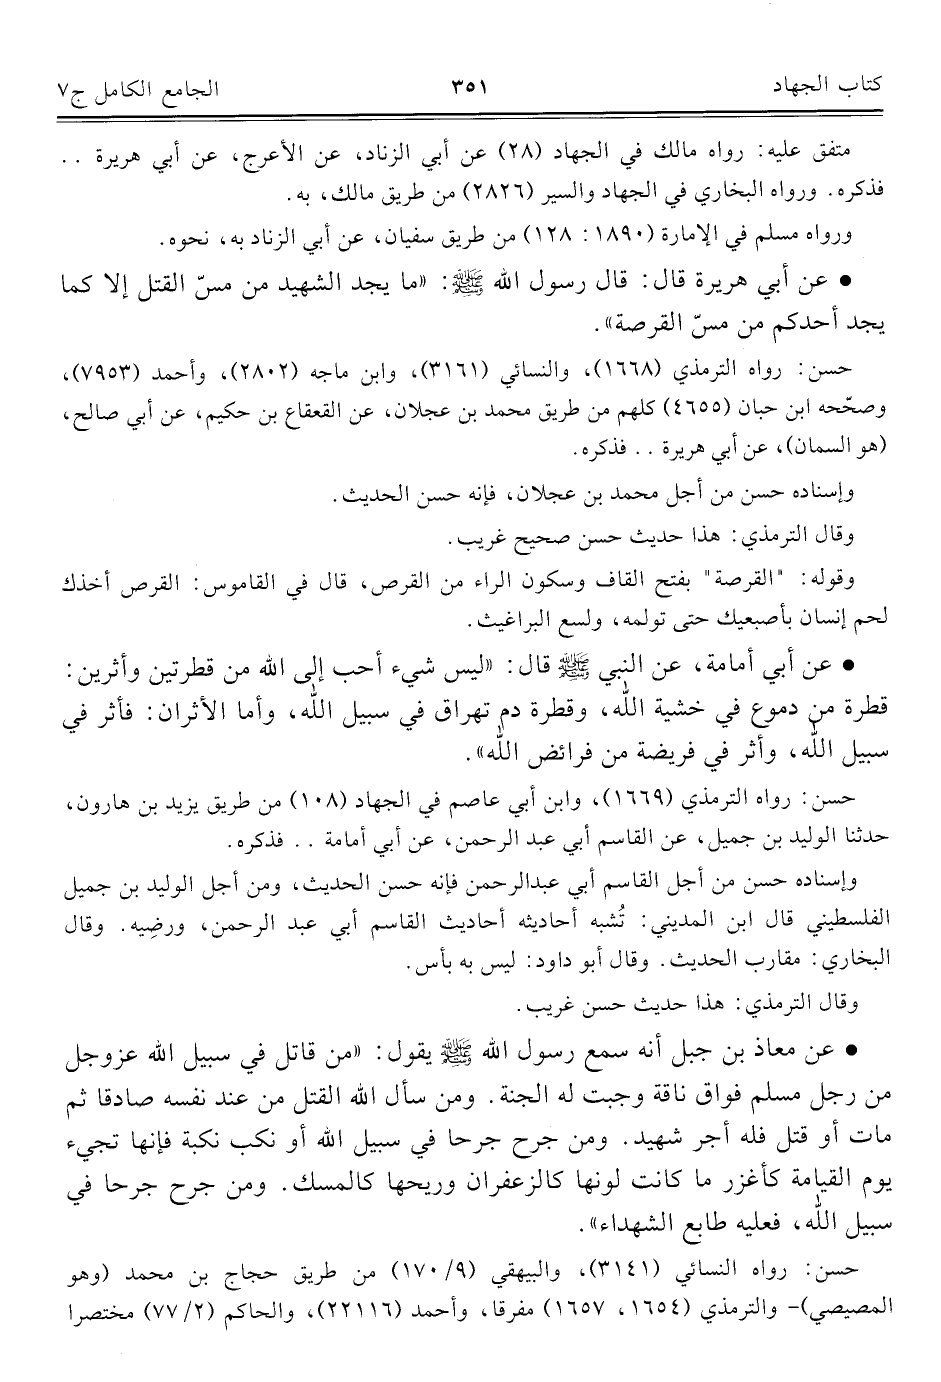 كتاب الجهاد ٣٥١ الجامع الكامل ج٧
متفق عليه: رواه مالك في الجهاد (٢٨) عن أبي الزناد، عن الأعرج، عن أبي هريرة ..
فذكره. ورواه البخاري في الجهاد والسير (٢٨٢٦) من طريق مالك، به.
ورواه مسلم في الإمارة (١٨٩٠: ١٢٨) من طريق سفيان، عن أبي الزناد به، نحوه.
• عن أبي هريرة قال: قال رسول الله ﷺ: «ما يجد الشهيد من مسّ القتل إلا كما
يجد أحدكم من مسّ القرصة».
حسن: رواه الترمذي (١٦٦٨)، والنسائي (٣١٦١)، وابن ماجه (٢٨٠٢)، وأحمد (٧٩٥٣)،
وصحّحه ابن حبان (٤٦٥٥) كلهم من طريق محمد بن عجلان، عن القعقاع بن حكيم، عن أبي صالح،
(هو السمان)، عن أبي هريرة .. فذكره.
وإسناده حسن من أجل محمد بن عجلان، فإنه حسن الحديث.
وقال الترمذي: هذا حديث حسن صحيح غريب.
وقوله: "القرصة" بفتح القاف وسكون الراء من القرص، قال في القاموس: القرص أخذك
لحم إنسان بأصبعيك حتى تولمه، ولسع البراغيث.
• عن أبي أمامة، عن النبي ﷺ قال: «ليس شيء أحب إلى الله من قطرتين وأثرين:
قطرة من دموع في خشية الله، وقطرة دم تهراق في سبيل الله، وأما الأثران: فأثر في
سبيل الله، وأثر في فريضة من فرائض الله».
حسن: رواه الترمذي (١٦٦٩)، وابن أبي عاصم في الجهاد (١٠٨) من طريق يزيد بن هارون،
حدثنا الوليد بن جميل، عن القاسم أبي عبد الرحمن، عن أبي أمامة .. فذكره.
وإسناده حسن من أجل القاسم أبي عبدالرحمن فإنه حسن الحديث، ومن أجل الوليد بن جميل
الفلسطيني قال ابن المديني: تُشبه أحاديثه أحاديث القاسم أبي عبد الرحمن، ورضِيه. وقال
البخاري: مقارب الحديث. وقال أبو داود: ليس به بأس.
وقال الترمذي: هذا حديث حسن غريب.
• عن معاذ بن جبل أنه سمع رسول الله ﷺ يقول: «من قاتل في سبيل الله عزوجل
من رجل مسلم فواق ناقة وجبت له الجنة. ومن سأل الله القتل من عند نفسه صادقا ثم
مات أو قتل فله أجر شهيد. ومن جرح جرحا في سبيل الله أو نكب نكبة فإنها تجيء
يوم القيامة كأغزر ما كانت لونها كالزعفران وريحها كالمسك. ومن جرح جرحا في
سبيل الله، فعليه طابع الشهداء».
حسن: رواه النسائي (٣١٤١)، والبيهقي (٩/١٧٠) من طريق حجاج بن محمد (وهو
المصيصي)- والترمذي (١٦٥٤، ١٦٥٧) مفرقا، وأحمد (٢٢١١٦)، والحاكم (٢/٧٧) مختصرا